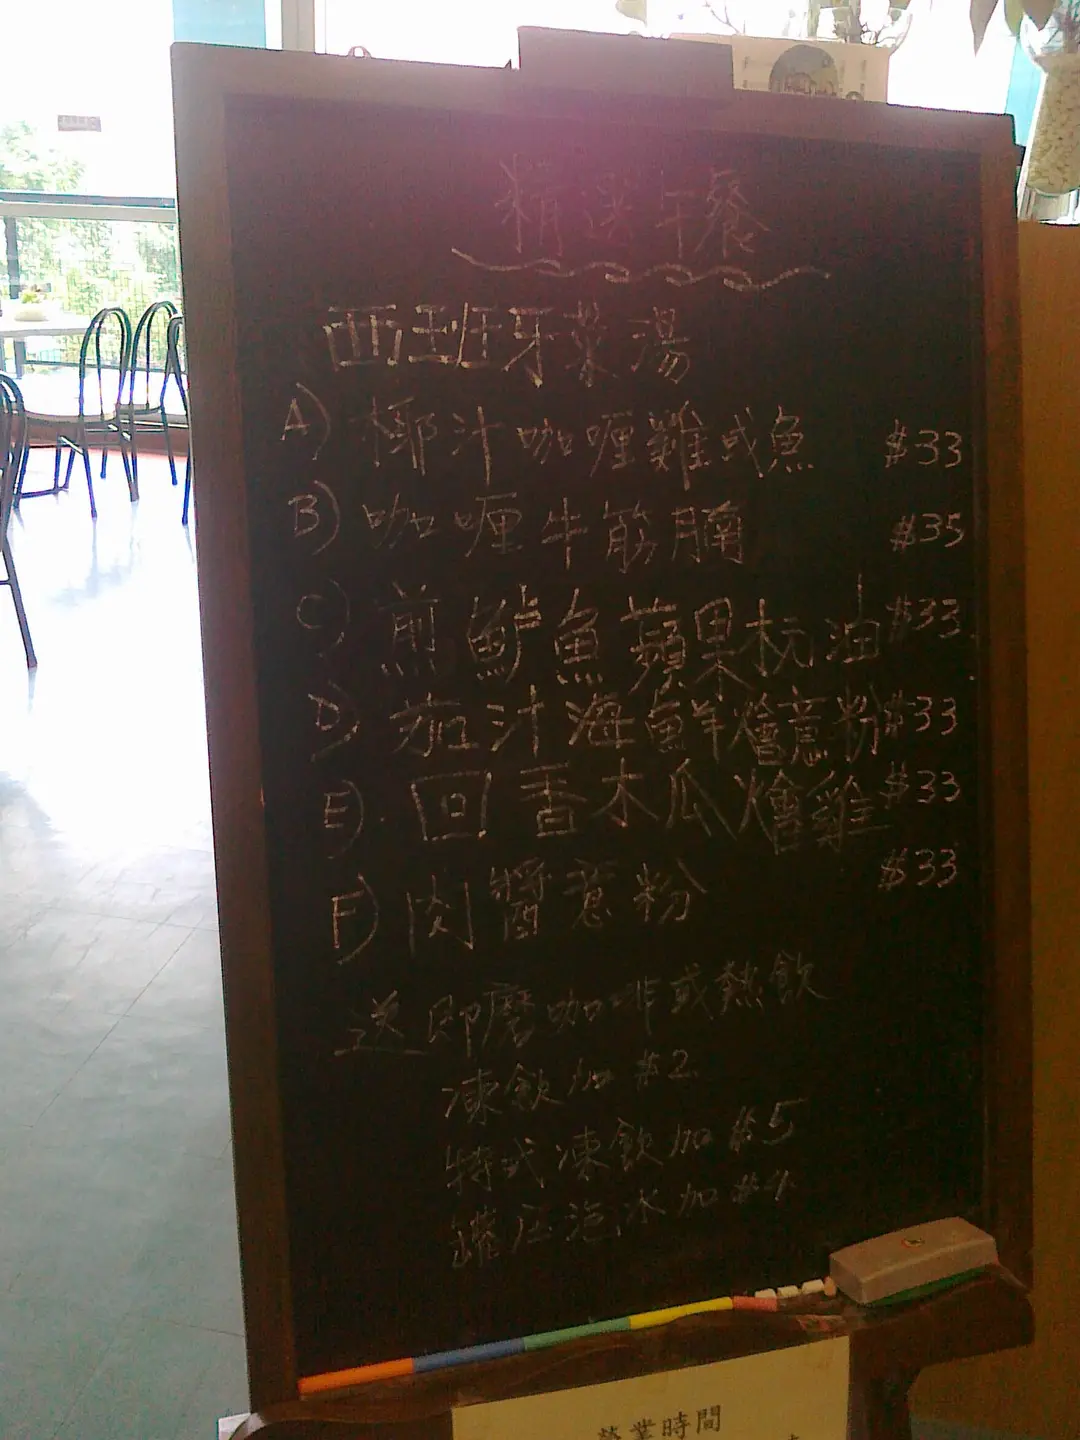 精選午餐
西班牙菜湯
A) 椰汁咖喱雞或魚 $33
B) 咖喱牛筋腩 $35
C) 煎鱸魚蘋果杬油 $33
D) 茄汁海鮮燴薏粉 $33
E) 回香木瓜燴雞 $33
F) 肉醬薏粉 $33
送即磨咖啡或熱飲
凍飲加 $2
特式凍飲加 $5
罐庄汽水加 $4
營業時間